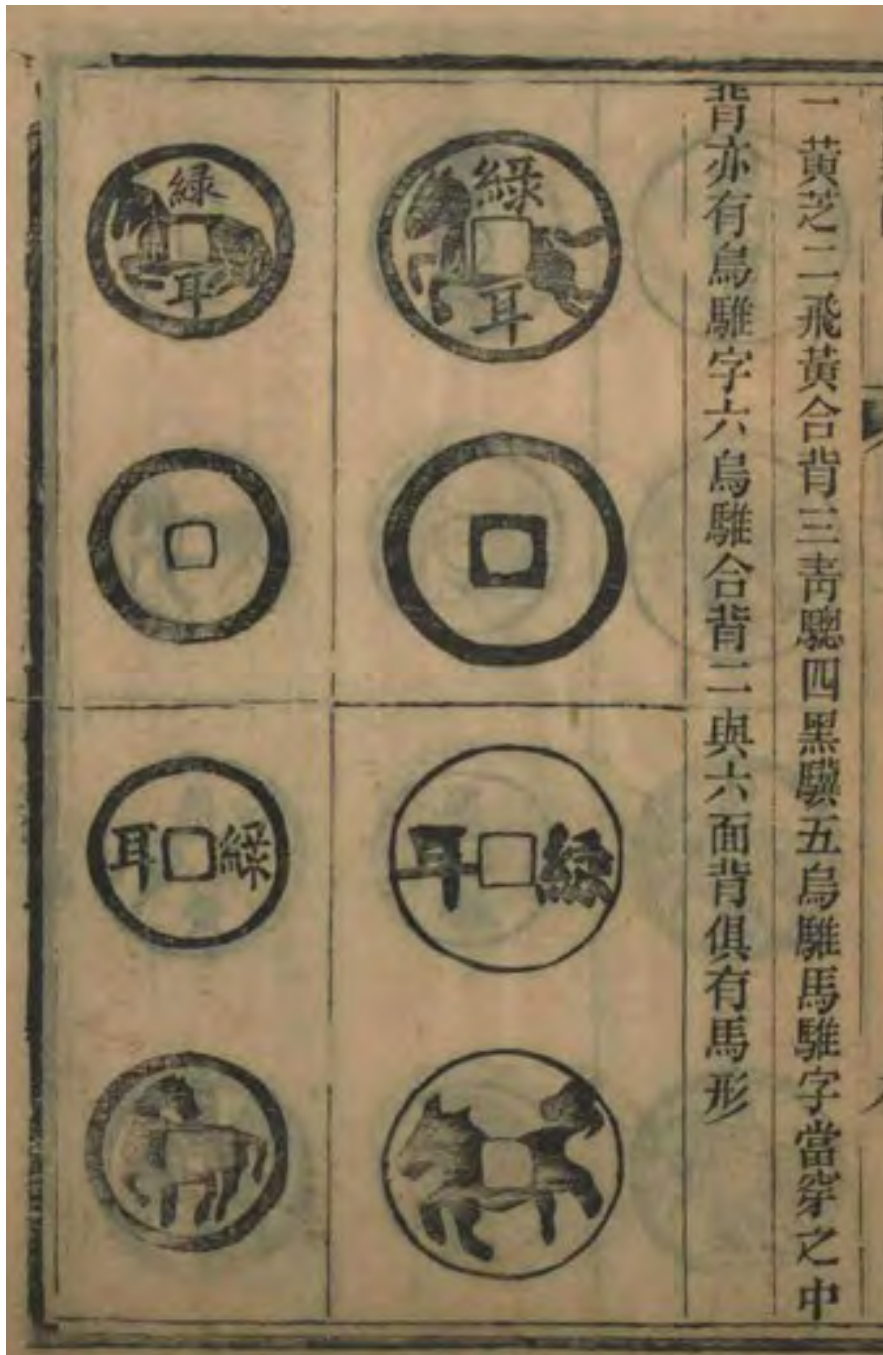 一黄芝二飛黄合背三青驄四黑驥五烏騅馬騅字當穿之中
背亦有烏騅字六烏騅合背二與六面背俱有馬形
綠耳
綠耳
綠耳
綠耳